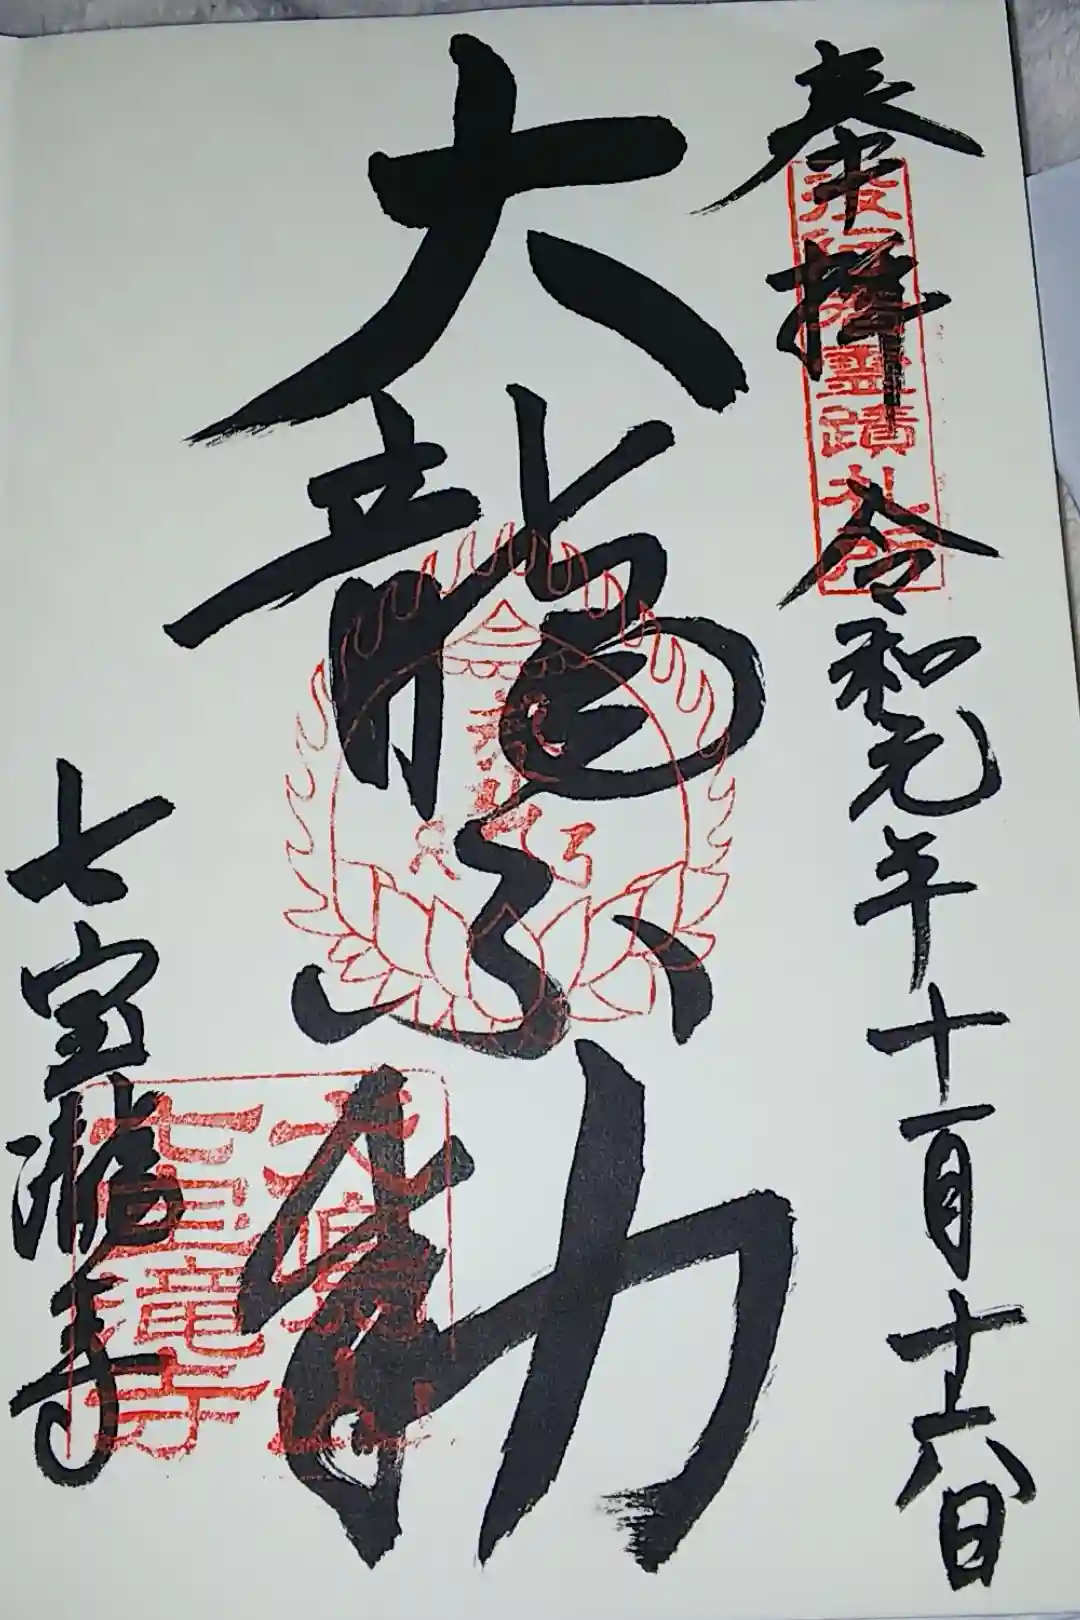 奉拝 令和元年十一月十六日
大龍不動
七宝瀧寺
霊蹟札所
犬鳴山
七宝竜寺